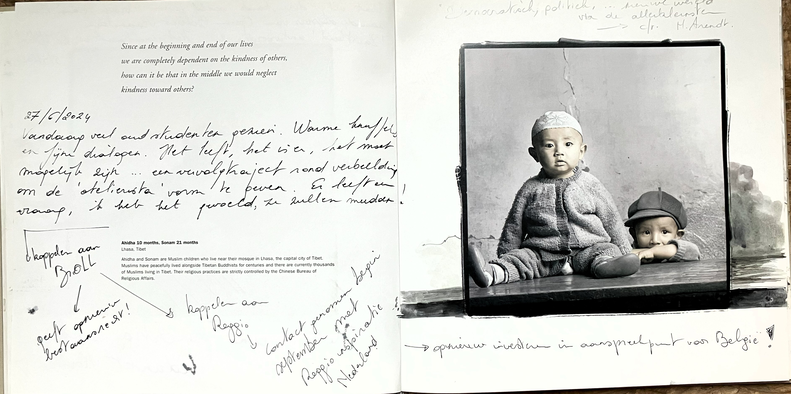 Since at the beginning and end of our lives
we are completely dependent on the kindness of others,
how can it be that in the middle we would neglect
kindness toward others?
27/6/2024
Vandaag veel oud studenten gezien. Warme knuffels
en fijne dialogen. Het leeft, het vier, het moet
mogelijk zijn ... een vervolgtraject rond verbeelding
om de 'atelierista' vorm te geven. Er leeft een
vraag, ik heb het gevoeld, ze zullen
!
koppelen aan
BOLL
geeft opnieuw
bestaansrecht!
Ahidha 10 months, Sonam 21 months
Lhasa, Tibet
Ahidha and Sonam are Muslim children who live near their mosque in Lhasa, the capital city of Tibet.
Muslims have peacefully lived alongside Tibetan Buddhists for centuries and there are currently thousands
of Muslims living in Tibet. Their religious practices are strictly controlled by the Chinese Bureau of
Religious Affairs.
koppelen aan
Reggio
contact genomen begin
september met
Reggio inspiratie
Nederland
politiek, ... nieuwe wereld
via de
→ cfr. H. Arendt.
→ opnieuw investeren in aanspreekpunt voor België!